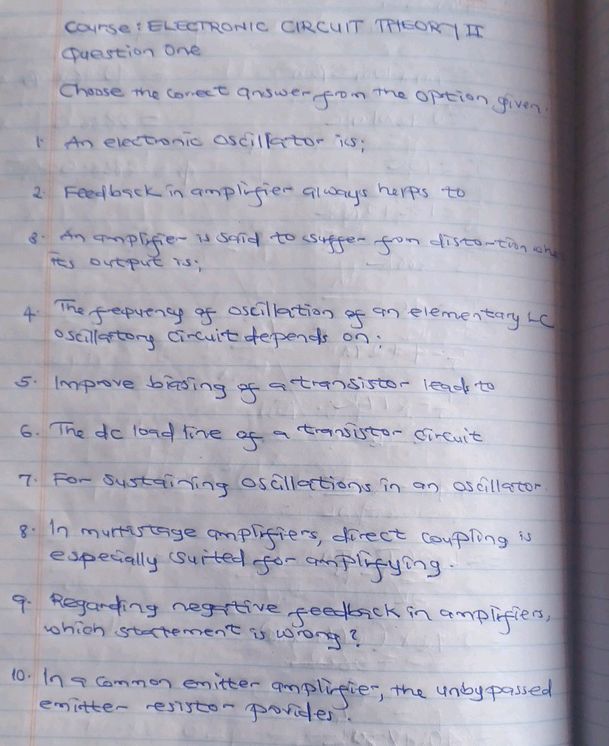 Course: ELECTRONIC CIRCUIT THEORY II
Question One
Choose the correct answer from the option given.
1 An electronic oscillator is;
2. Feedback in amplifier always herps to
3. An amplifier is said to suffer from distortion
its output is;
4. The frequency of oscillation of an elementary LC
oscillatory circuit depends on:
5. Improve biasing of a transistor leads to
6. The dc load line of a transistor circuit
7. For sustaining oscillations in an oscillator
8. In multistage amplifiers, direct coupling is
especially suited for amplifying.
9. Regarding negative feedback in amplifiers,
which statement is wrong?
10. In a common emitter amplifier, the unbypassed
emitter resistor provides.